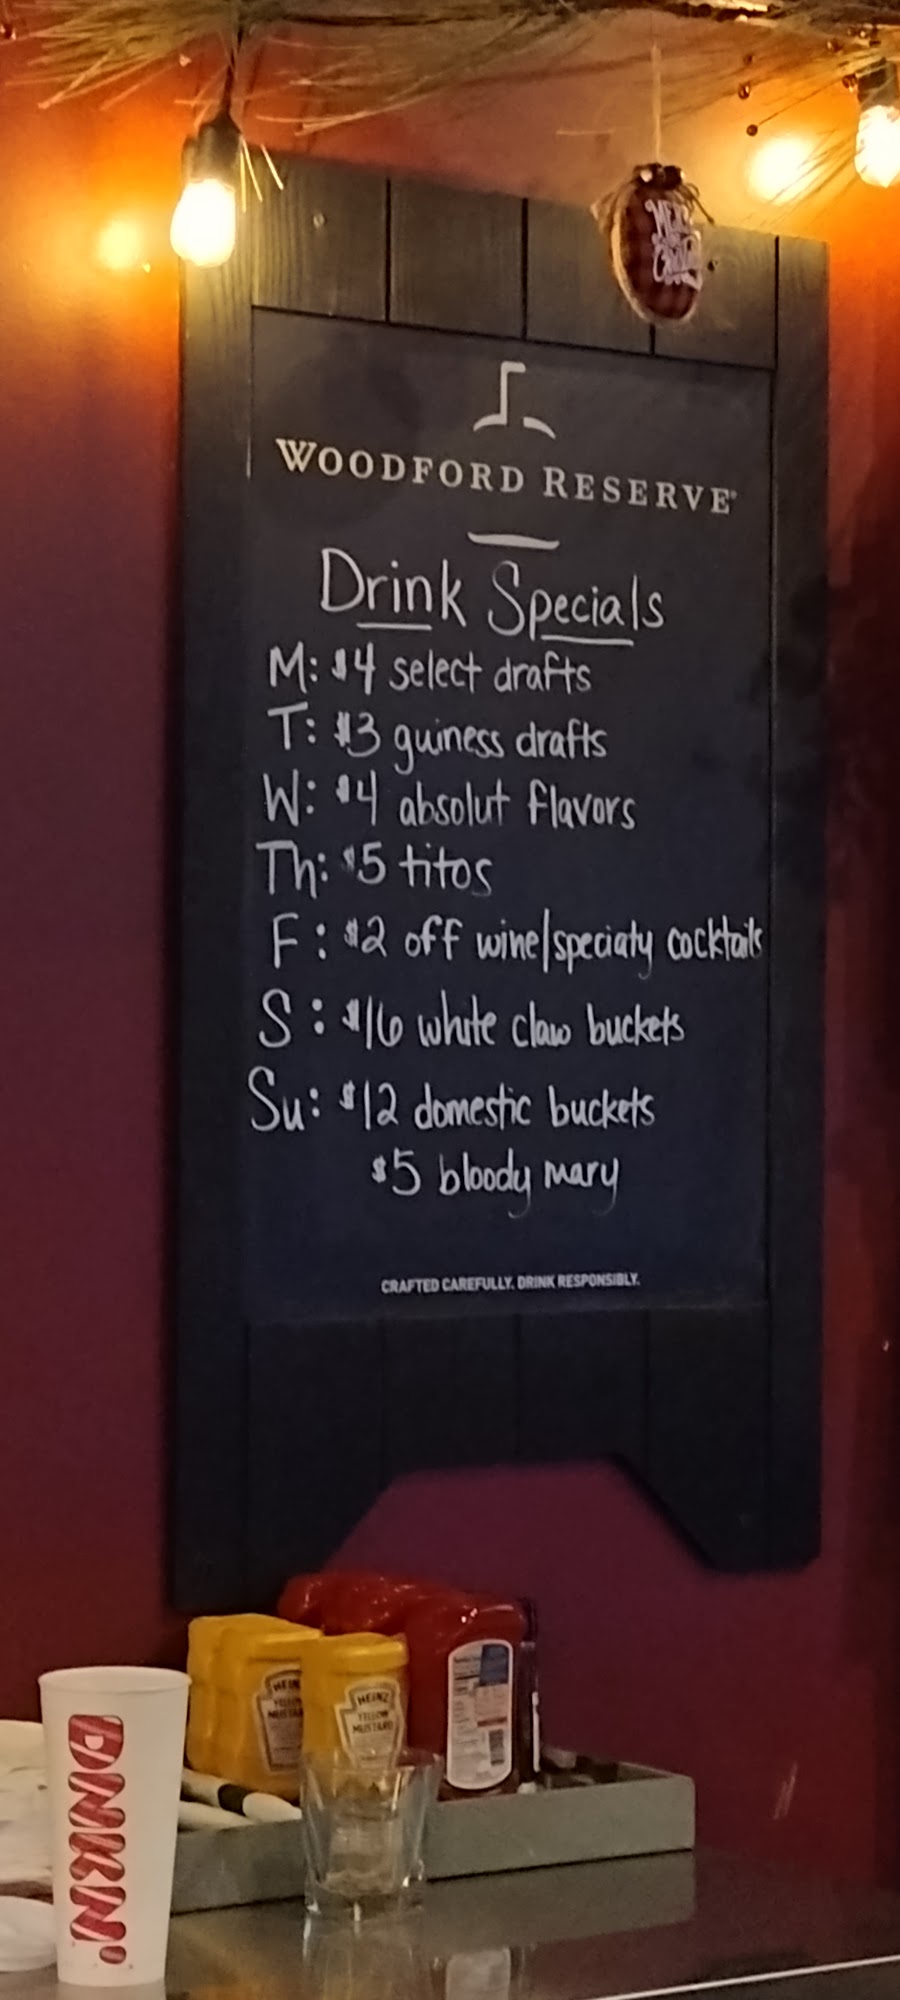 MERRY
WOODFORD RESERVE®
Drink Specials
M: $4 select drafts
T: $3 guiness drafts
W: $4 absolut flavors
Th: $5 titos
F: $2 off wine/speciaty cocktails
S: $16 white claw buckets
Su: $12 domestic buckets
$5 bloody mary
CRAFTED CAREFULLY. DRINK RESPONSIBLY.
HEINZ
YELLOW
MUSTARD
HEINZ
YELLOW
MUSTARD
DUNKIN'